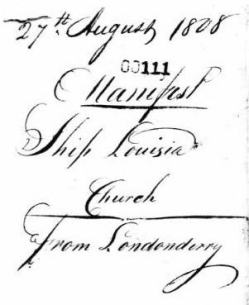 27th. August 1808
00111
Manifest
Ship Louisia
Church
From Londonderry